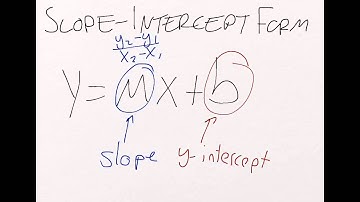 SLOPE-INTERCEPT FORM
y₂-y₁
x₂-x₁
y=mx+b
slope
y-intercept